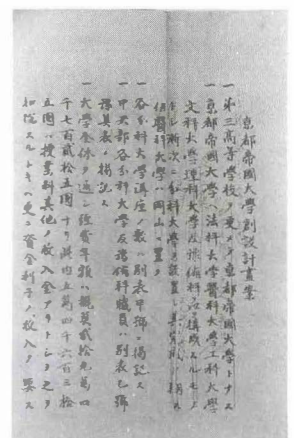 京都帝國大學創設計畫案
一 第三高等學校ヲ更メテ京都帝國大學トナス
一 京都帝國大學ハ法科大學醫科大學工科大學
文科大學理科大學及豫備科ヲ以テ構成スルモノ
トシ漸次ニ分科大學ヲ設置シ
但醫科大學ハ岡山ニ置ク
一 各分科大學講座ノ數ハ別表甲號ニ掲記ス
一 甲乙部各分科大學及豫備科職員ハ別表乙號
ニ掲記ス
一 大學全体ヲ通シ經費年額ハ概算貳拾九萬四
千七百貳拾五圓トナリ其内五萬四千六百三拾
五圓ハ授業料其他ノ收入金アリトシ之ヲ
扣除スルトキハ更ニ資金利子ノ收入ヲ要ス